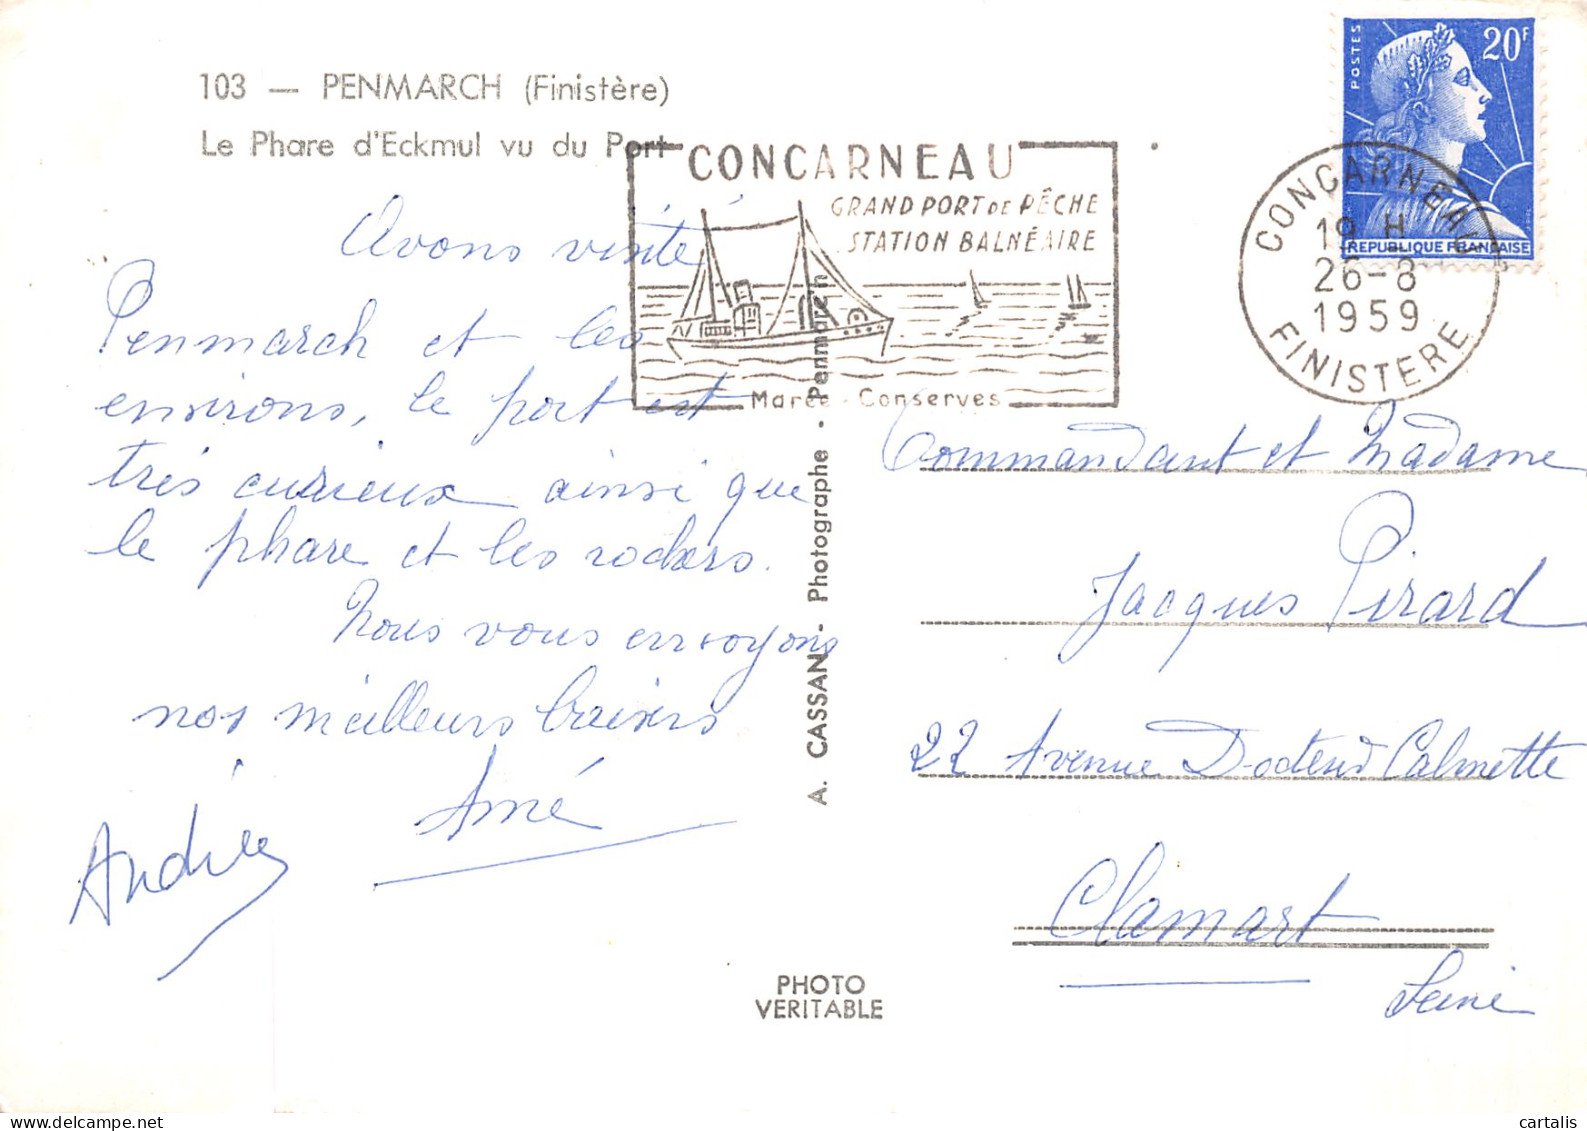 103 — PENMARCH (Finistère)
Le Phare d'Eckmul vu du Port
CONCARNEAU
GRAND PORT DE PÊCHE
STATION BALNÉAIRE
Marée - Conserves
POSTES
20F
REPUBLIQUE FRANÇAISE
CONCARNEAU
19 H
26-8
1959
FINISTERE
Avons visité
Penmarch et les
environs, le port est
très curieux ainsi que
le phare et les rochers.
Nous vous envoyons
nos meilleurs baisers
Aimé
Andrée
A. CASSAN - Photographe - Penmarc'h
PHOTO
VERITABLE
Commandant et Madame
Jacques Pirard
22 Avenue Docteur Calmette
Clamart
Seine
cartalis